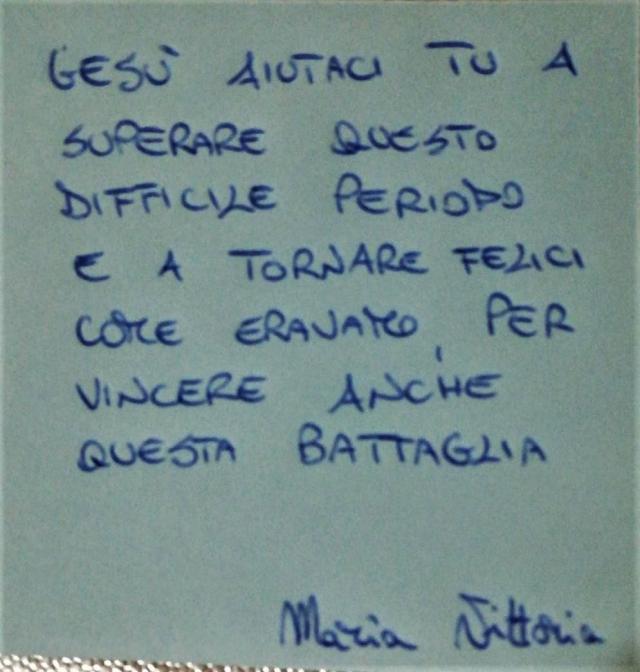 GESÙ AIUTACI TU A
SUPERARE QUESTO
DIFFICILE PERIODO
E A TORNARE FELICI
COME ERAVAMO, PER
VINCERE ANCHE
QUESTA BATTAGLIA
Maria Vittoria